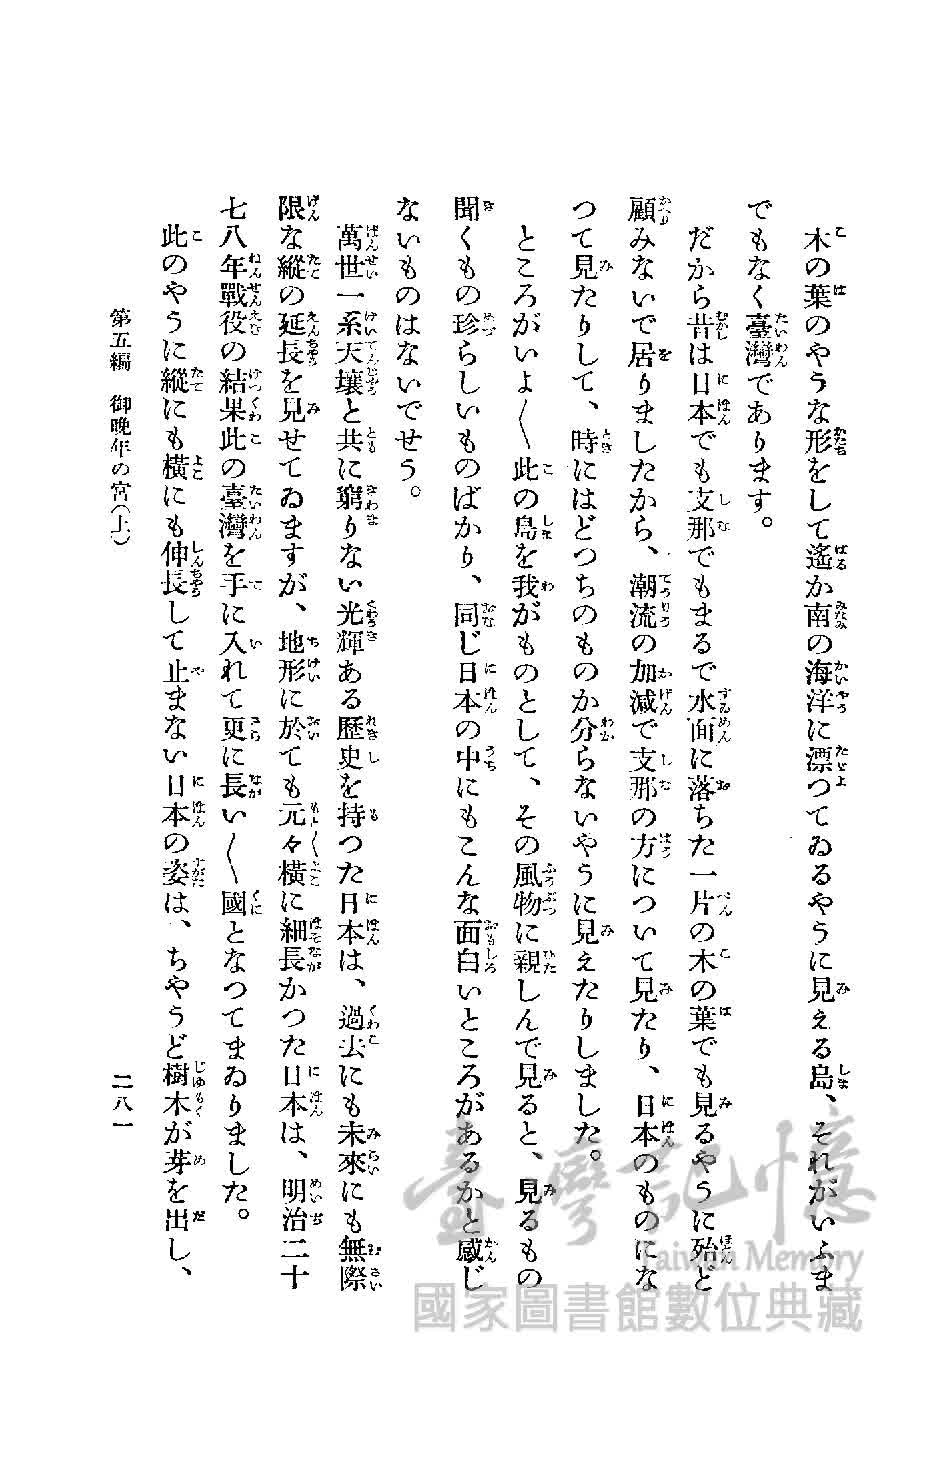 木の葉のやうな形をして遙か南の海洋に漂つてゐるやうに見える島、それがいふま
でもなく臺灣であります。
だから昔は日本でも支那でもまるで水面に落ちた一片の木の葉でも見るやうに殆ど
顧みないで居りましたから、潮流の加減で支那の方について見たり、日本のものにな
つて見たりして、時にはどつちのものか分らないやうに見えたりしました。
ところがいよ〱此の島を我がものとして、その風物に親しんで見ると、見るもの
聞くもの珍らしいものばかり、同じ日本の中にもこんな面白いところがあるかと感じ
ないものはないでせう。
萬世一系天壤と共に窮りない光輝ある歷史を持つた日本は、過去にも未來にも無際
限な縱の延長を見せてゐますが、地形に於ても元々橫に細長かつた日本は、明治二十
七八年戰役の結果此の臺灣を手に入れて更に長い〱國となつてまゐりました。
此のやうに縱にも橫にも伸長して止まない日本の姿は、ちやうど樹木が芽を出し、
第五編 御晩年の宮(上)
二八一
臺灣記憶
Taiwan Memory
國家圖書館數位典藏